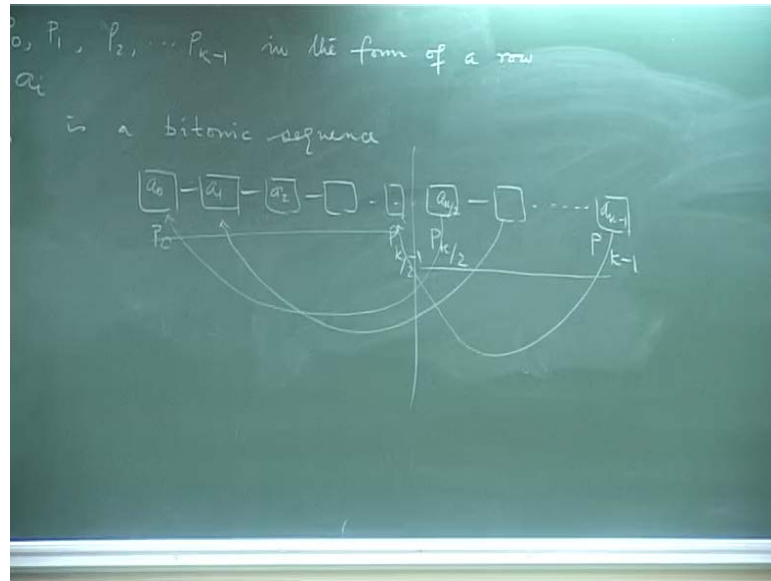 P0, P1, P2, ... Pk-1 in the form of a row
ai
is a bitonic sequence
a0 a1 a2 . . . ak/2 ..... ak-1
P0 Pk/2-1 Pk/2 Pk-1